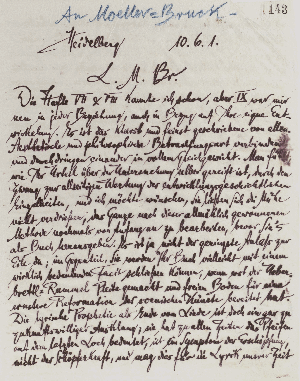 An Moeller-Bruck.
143
Heidelberg 10.6.1.
L. M. Br.
Die Hefte VII & VIII kannte ich schon, aber IX war mir
neu in jeder Beziehung, auch in Bezug auf Ihre eigne Ent-
wickelung. Es ist das klarst und feinst geschriebene von allen.
Aesthetische und philosophische Betrachtungsart verbinden
und durchdringen einander in vollem Gleichgewicht. Man fühlt
wie Ihr Urteil über der Unternehmung selber gereift ist, durch den
Zwang zur allseitigen Wertung der entwicklungsgeschichtlichen
Einzelheiten, und ich möchte wünschen, Sie ließen sich die Mühe
nicht verdrießen, das Ganze nach dieser allmählich gewonnenen
Methode nochmals von Anfang an zu bearbeiten, bevor Sie's
als Buch herausgeben. Es ist ja nicht der geringste Anlaß zur
Eile da; im Gegenteil, Sie werden Ihr Buch vielleicht mit einem
wirklich bedeutenden Facit schließen können, wenn erst der Ueber-
brettl-Rummel Pleite gemacht und freien Boden für eine
Reformation der scenischen Künste bereitet hat.
Die lyrische Prophetie als Ende vom Liede ist doch ein gar zu
Ausklang; sie hat zu allen Zeiten das Pfeifen
auf dem letzten Loch bedeutet, ist ein Symptom der Erschöpfung,
nicht der Schöpferkraft, und mag dies für die Lyrik unsrer Zeit